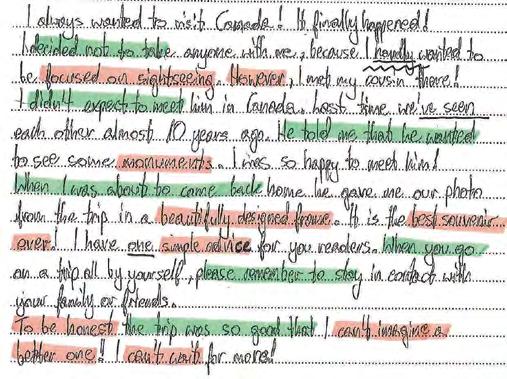 I always wanted to visit Canada! It finally happened!
I decided not to take anyone with me, because I really wanted to
be focused on sightseeing. However, I met my cousin there!
I didn't expect to meet him in Canada. Last time we've seen
each other almost 10 years ago. He told me that he wanted
to see some monuments. I was so happy to meet him!
When I was about to come back home he gave me our photo
from the trip in a beautifully designed frame. It is the best souvenir
ever! I have one simple advice for you readers. When you go
on a trip all by yourself, please remember to stay in contact with
your family or friends.
To be honest the trip was so good that I can't imagine a
better one! I can't wait for more!